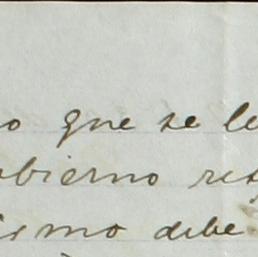 o que se le
obierno res
ismo debe